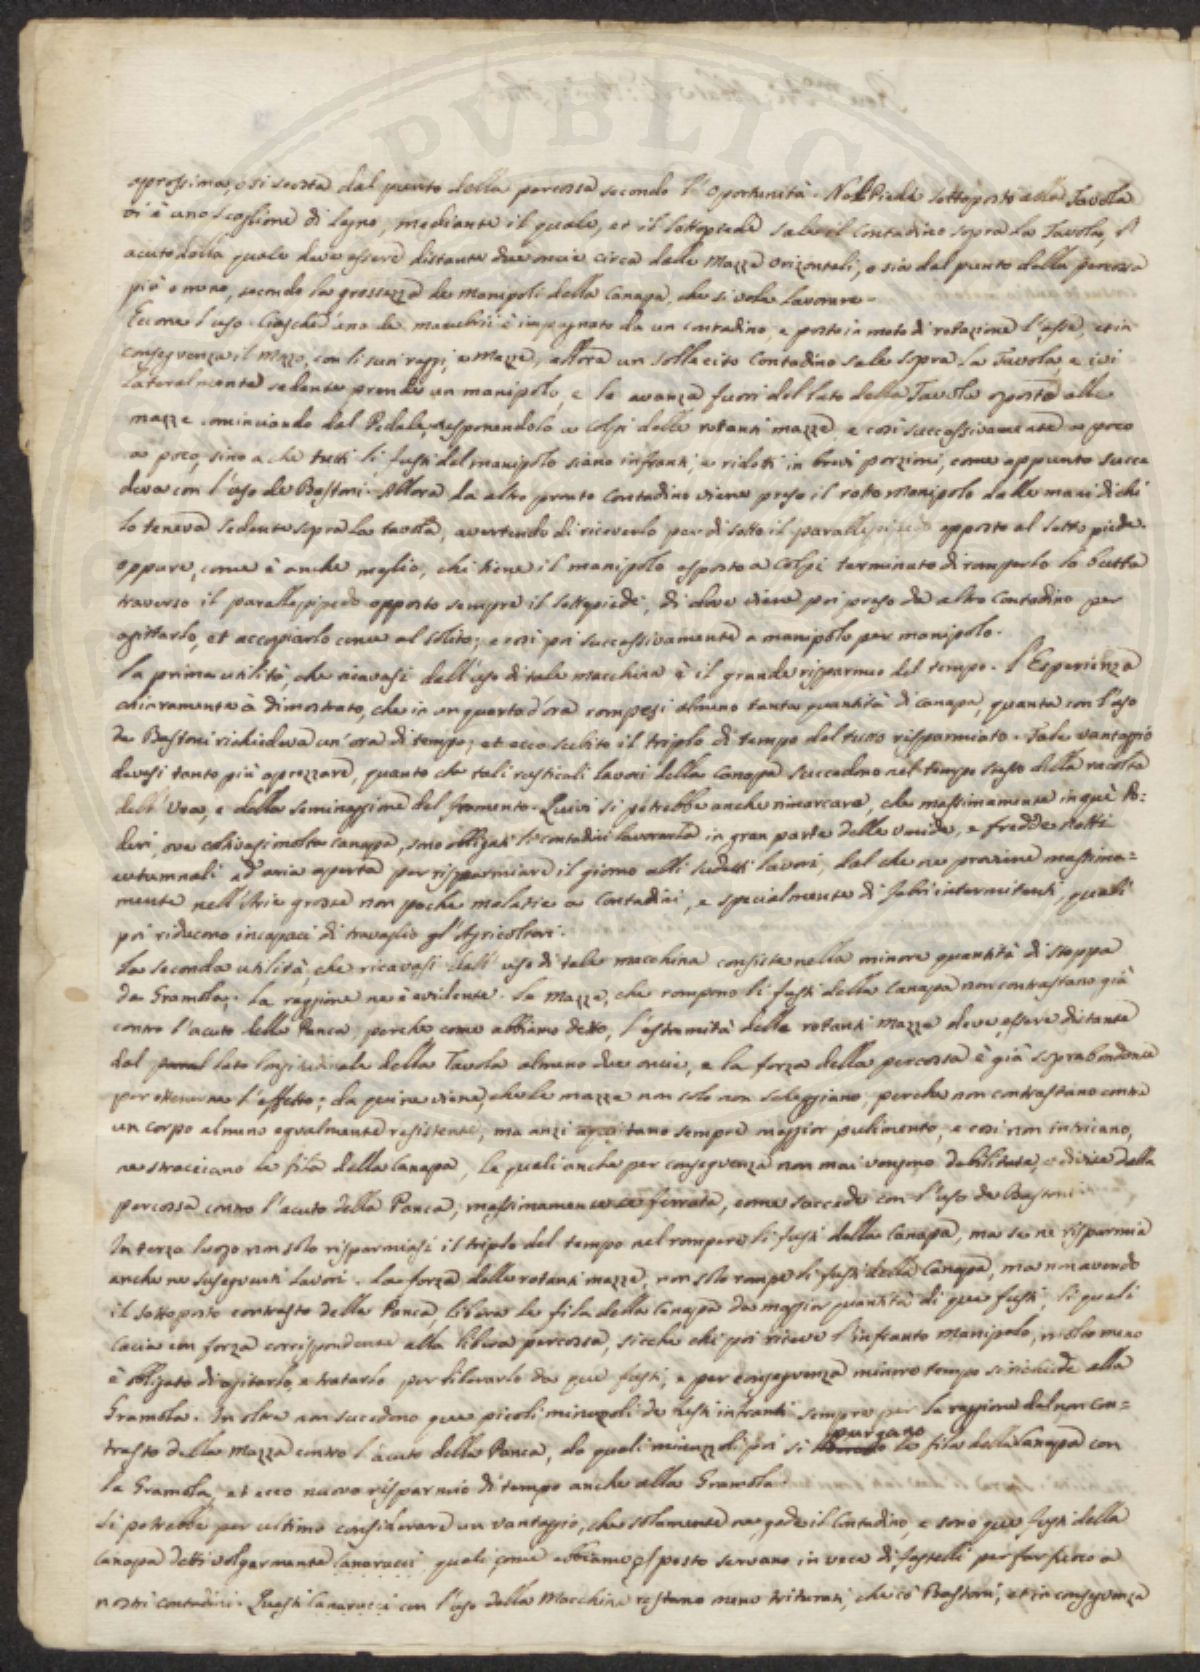 PVBLIC
approssima, o si scosta dal punto della percossa secondo l'Oportunità. Nel Piede sottoposto alla Tavola
vi è uno scaglione di legno, mediante il quale, et il sottopiede sale il Contadino sopra la Tavola, l'
acuto della quale deve essere distante due oncie circa dalle Mazze Orizontali, o sia dal punto della percossa
più o meno, secondo la grossezza de Manipoli della Canapa, che si vole lavorare.
Eccone l'uso. Ciasched'uno de manubrii è impugnato da un contadino, e posto in moto di rotazione l'asse, et in
conseguenza il Mozzo, con li suoi raggi, e Mazze, allora un sollecito Contadino sale sopra la Tavola, e ivi
lateralmente sedente prende un manipolo, e lo avanza fuori del lato della Tavola oposta alle
mazze, cominciando dal Pedale, esponendolo a colpi delle rotanti mazze, e così successivamente a poco
a poco, sino a che tutti li fusti del manipolo siano infranti, e ridotti in brevi porzioni, come appunto succe
deva con l'uso de Bastoni. Allora da altro pronto Contadino viene preso il rotto Manipolo dalle mani di chi
lo teneva sedente sopra la tavola, avertendo di riceverlo per di sotto il parallepipedo opposto al sotto piede.
oppure, come è anche meglio, chi tiene il manipolo esposto a Colpi terminato di romperlo lo butta
traverso il parallepipedo opposto sempre il sottopiede, di dove viene poi preso da altro Contadino per
agittarlo, et accopiarlo come al solito; e così poi successivamente a manipolo per manipolo.
La prima utilità, che ricavasi dall'uso di tale macchina è il grande risparmio del tempo. L'Esperienza
chiaramente à dimostrato, che in un quarto d'ora rompesi almeno tanta quantità di canapa, quanta con l'uso
de Bastoni richiedeva un'ora di tempo; et ecco subito il triplo di tempo del tutto risparmiato. Tale vantaggio
devesi tanto più aprezzare, quanto che tali rusticali lavori della Canapa succedono nel tempo stesso della racolta
dell'Uva, e della seminaggione del formento. Quivi si potrebbe anche rimarcare, che massimamente in què Po=
deri, ove coltivasi molta canapa, sono obligati li contadini lavorarla in gran parte delle umide, e fredde Notti
autumnali ad aria aperta per risparmiare il giorno alli sudetti lavori, dal che ne proviene massima=
mente nell'Arie grosse non poche malatie a Contadini, e specialmente di febri intermittenti, quali
poi riducono incapaci di travaglio gl'Agricoltori.
La seconda utilità, che ricavasi dall'uso di tale macchina consiste nella minore quantità di stoppa
da Gramola; la raggione ne è evidente. Le Mazze, che rompono li fusti della Canapa non contrastano già
contro l'acuto della Panca, perche come abbiamo detto, l'estremità delle rotanti Mazze deve essere distante
dal lato longitudinale della Tavola almeno due oncie, e la forza della percossa è già soprabondante
per ottenerne l'effetto; da poi ne viene, che le mazze non solo non scheggiano, perche non contrastano contro
un corpo almeno egualmente resistente, ma anzi acquistano sempre maggior pulimento, e così non intricano,
ne stracciano le fila della Canapa, le quali anche per conseguenza non mai vengono debilitate, e divise dalla
percossa contro l'acuto della Panca, massimamente se ferrata, come succede con l'uso de Bastoni
In terzo luogo non solo risparmiasi il triplo del tempo nel rompere li fusti della Canapa, ma se ne risparmia
anche ne susseguenti lavori. La forza delle rotanti mazze, non solo rompe li fusti della Canapa, ma non avendo
il sottoposto contrasto della Panca, libera le fila della Canapa da maggior quantità di que fusti, li quali
cacia con forza corrispondente alla libera percossa, sicche chi poi riceve l'infranto Manipolo, molto meno
è obligato di agitarlo, e tratarlo per liberarlo da que fusti, e per conseguenza minore tempo si richiede alla
Gramola. In oltre non succedono que picoli minuzzoli de fusti infranti sempre per la raggione del non con=
trasto della Mazza contro l'acuto della Panca, da quali minuzzoli poi si purgano le fila della Canapa con
la Gramola, et ecco nuovo risparmio di tempo anche alla Gramola.
Si potrebbe per ultimo considerare un vantaggio, che solamente ne gode il Contadino, e sono que fusti della
Canapa detti volgarmente Canarucci quali, come abbiamo esposto servano in vece di fastelli per far fuoco a
nostri contadini. Questi Canarucci con l'uso della Macchina restano meno triturati, che co' Bastoni, et in conseguenza